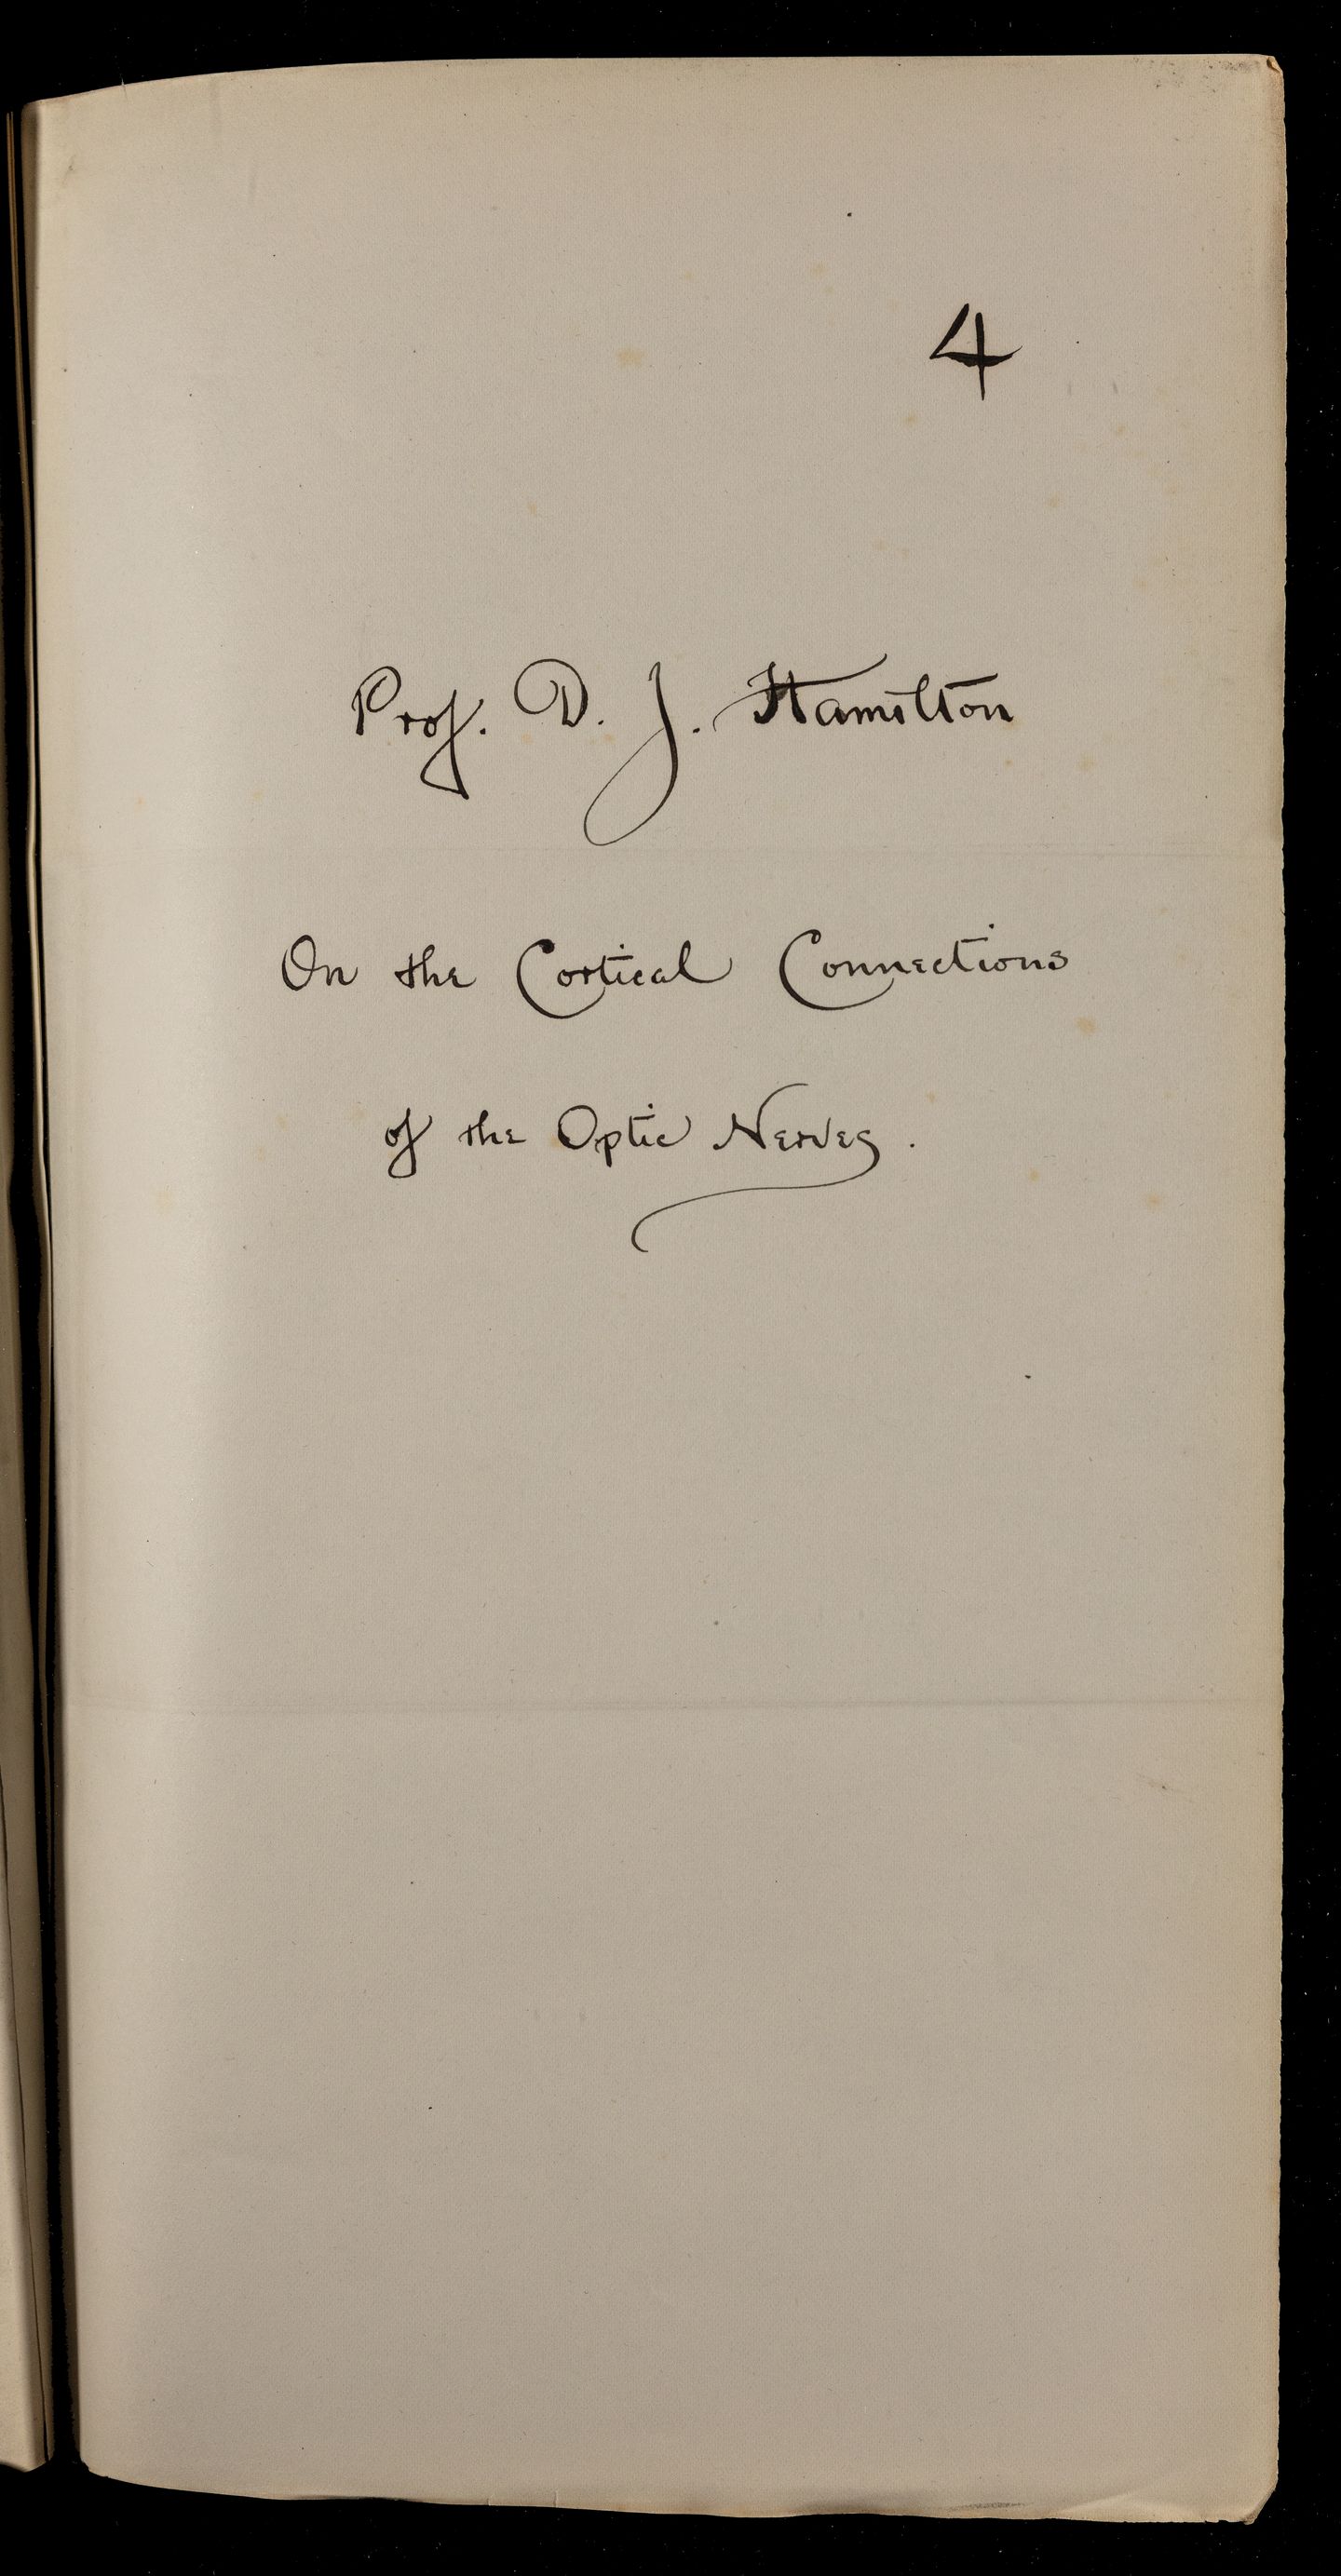 4
Prof. D. J. Hamilton
On the Cortical Connections
of the Optic Nerves.